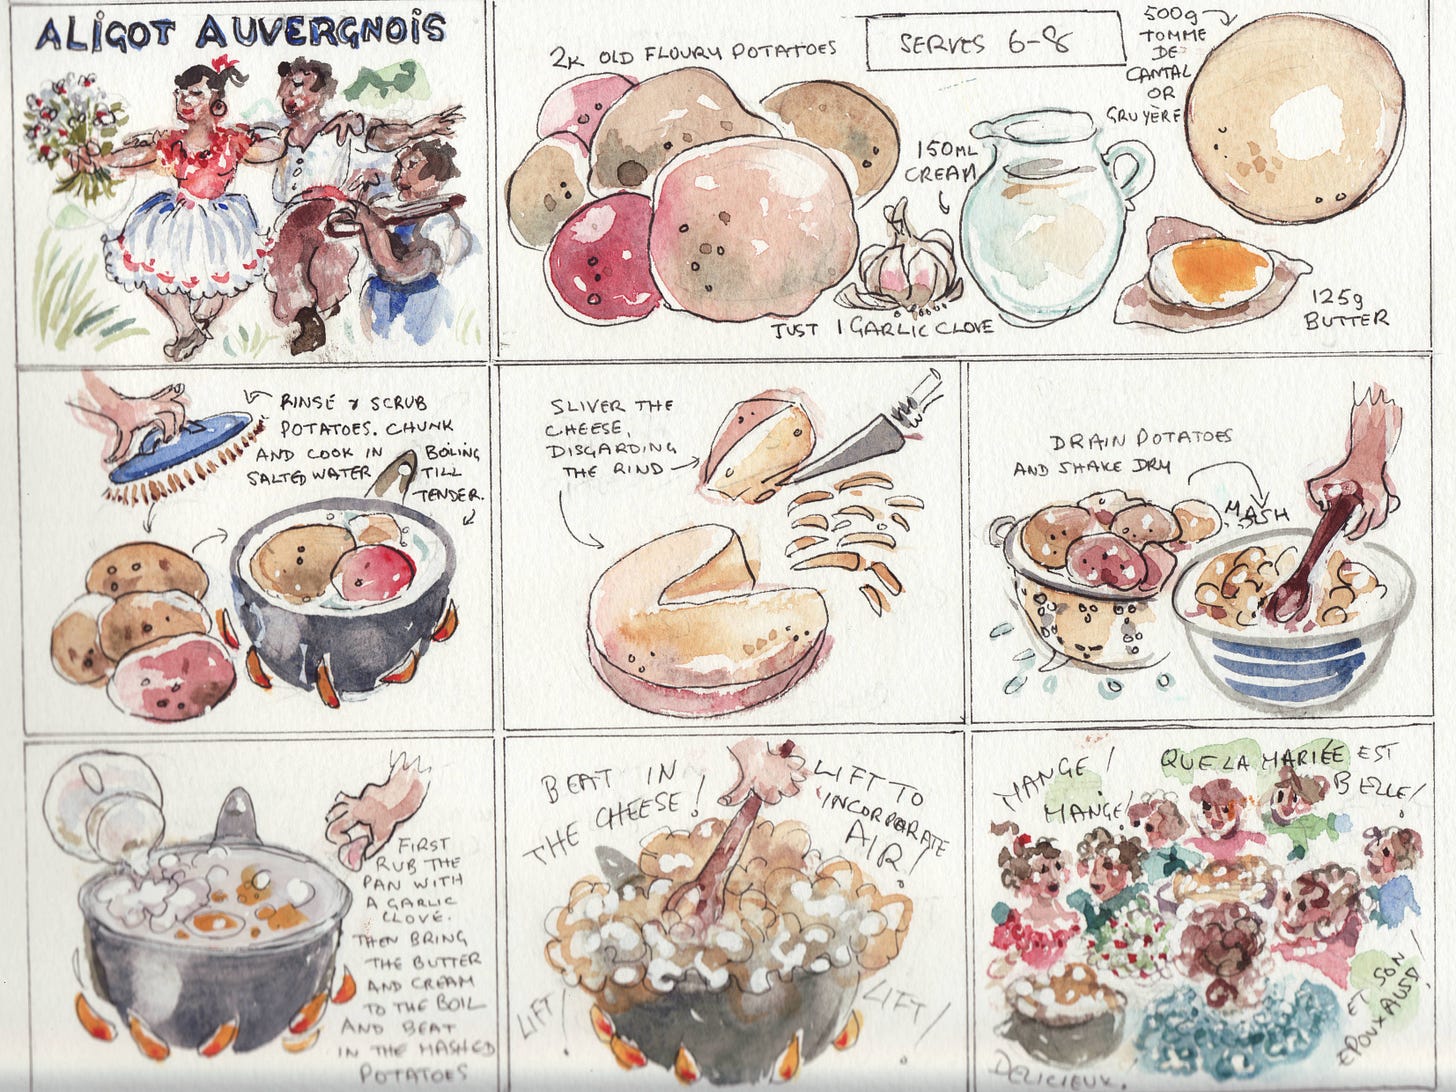 ALIGOT AUVERGNOIS
2K OLD FLOURY POTATOES
SERVES 6-8
500g
TOMME
DE
CANTAL
OR
GRUYÈRE
150ML
CREAM
JUST 1 GARLIC CLOVE
125g
BUTTER
RINSE & SCRUB
POTATOES. CHUNK
AND COOK IN
SALTED WATER
BOILING
TILL
TENDER.
SLIVER THE
CHEESE,
DISGARDING
THE RIND
DRAIN POTATOES
AND SHAKE DRY
MASH
FIRST
RUB THE
PAN WITH
A GARLIC
CLOVE.
THEN BRING
THE BUTTER
AND CREAM
TO THE BOIL
AND BEAT
IN THE MASHED
POTATOES
BEAT IN
THE CHEESE!
LIFT TO
INCORPORATE
AIR!
LIFT!
LIFT!
MANGE!
MANGE!
QUE LA MARIÉE EST
BELLE!
ET SON
EPOUX AUSSI!
DELICIEUX.